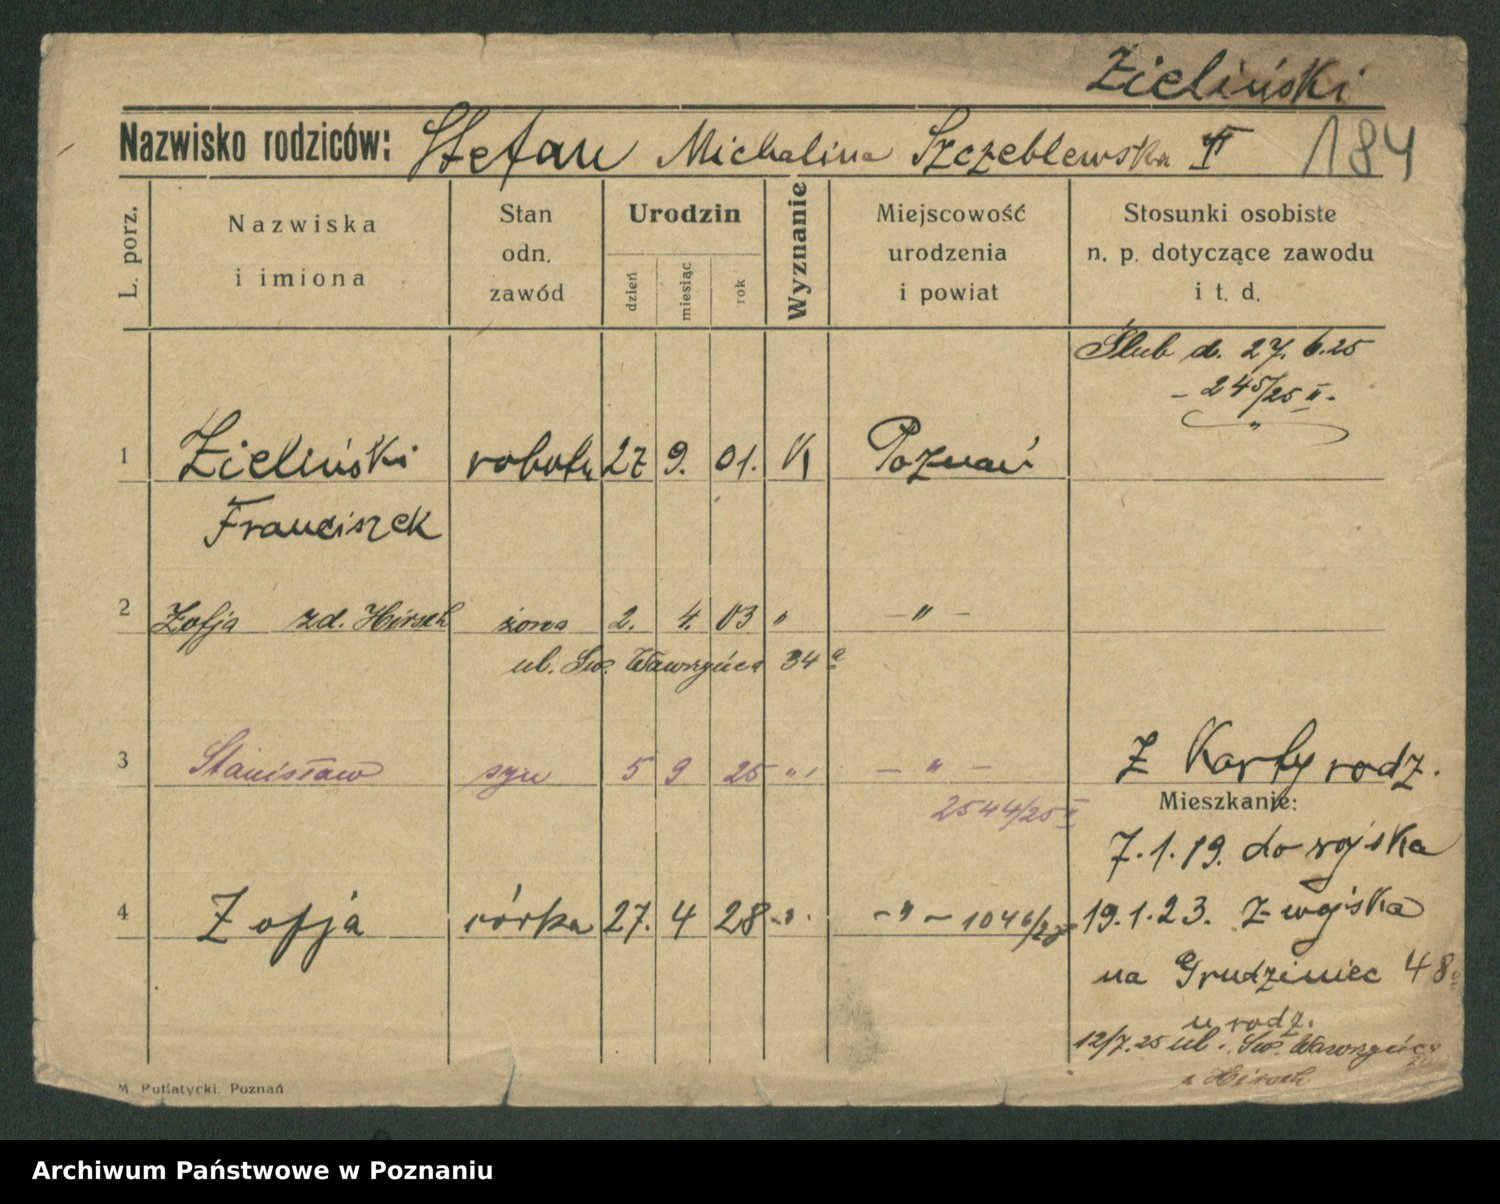 Zieliński
Nazwisko rodziców: Stefan Michalina Szczeblewska II 184
L. porz.
Nazwiska
i imiona
Stan
odn.
zawód
Urodzin
dzień
miesiąc
rok
Wyznanie
Miejscowość
urodzenia
i powiat
Stosunki osobiste
n. p. dotyczące zawodu
i t. d.
Ślub d. 27. 6. 25
- 245/25 II -
1 Zieliński robotn 27 9. 01. K Poznań
Franciszek
2 Zofja zd. Hirsch żona 2. 4. 03 " - " -
ul. Św. Wawrzyńca 34a
3 Stanisław syn 5 9 25 " - " - Z Karty rodz.
2544/25 II
Mieszkanie:
7.1.19. do wojska
4 Zofja córka 27. 4 28 - " - - " - 1046/28 19.1.23. Z wojska
na Grudzieniec 48
u rodz.
12/7.25 ul. Św. Wawrzyńca
u Hirsch
M. Putiatycki. Poznań
Archiwum Państwowe w Poznaniu